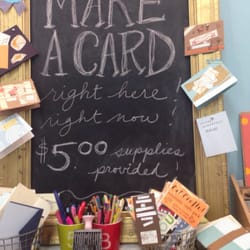 MAKE
A CARD
right here
right now!
$5.00 supplies
provided!
B